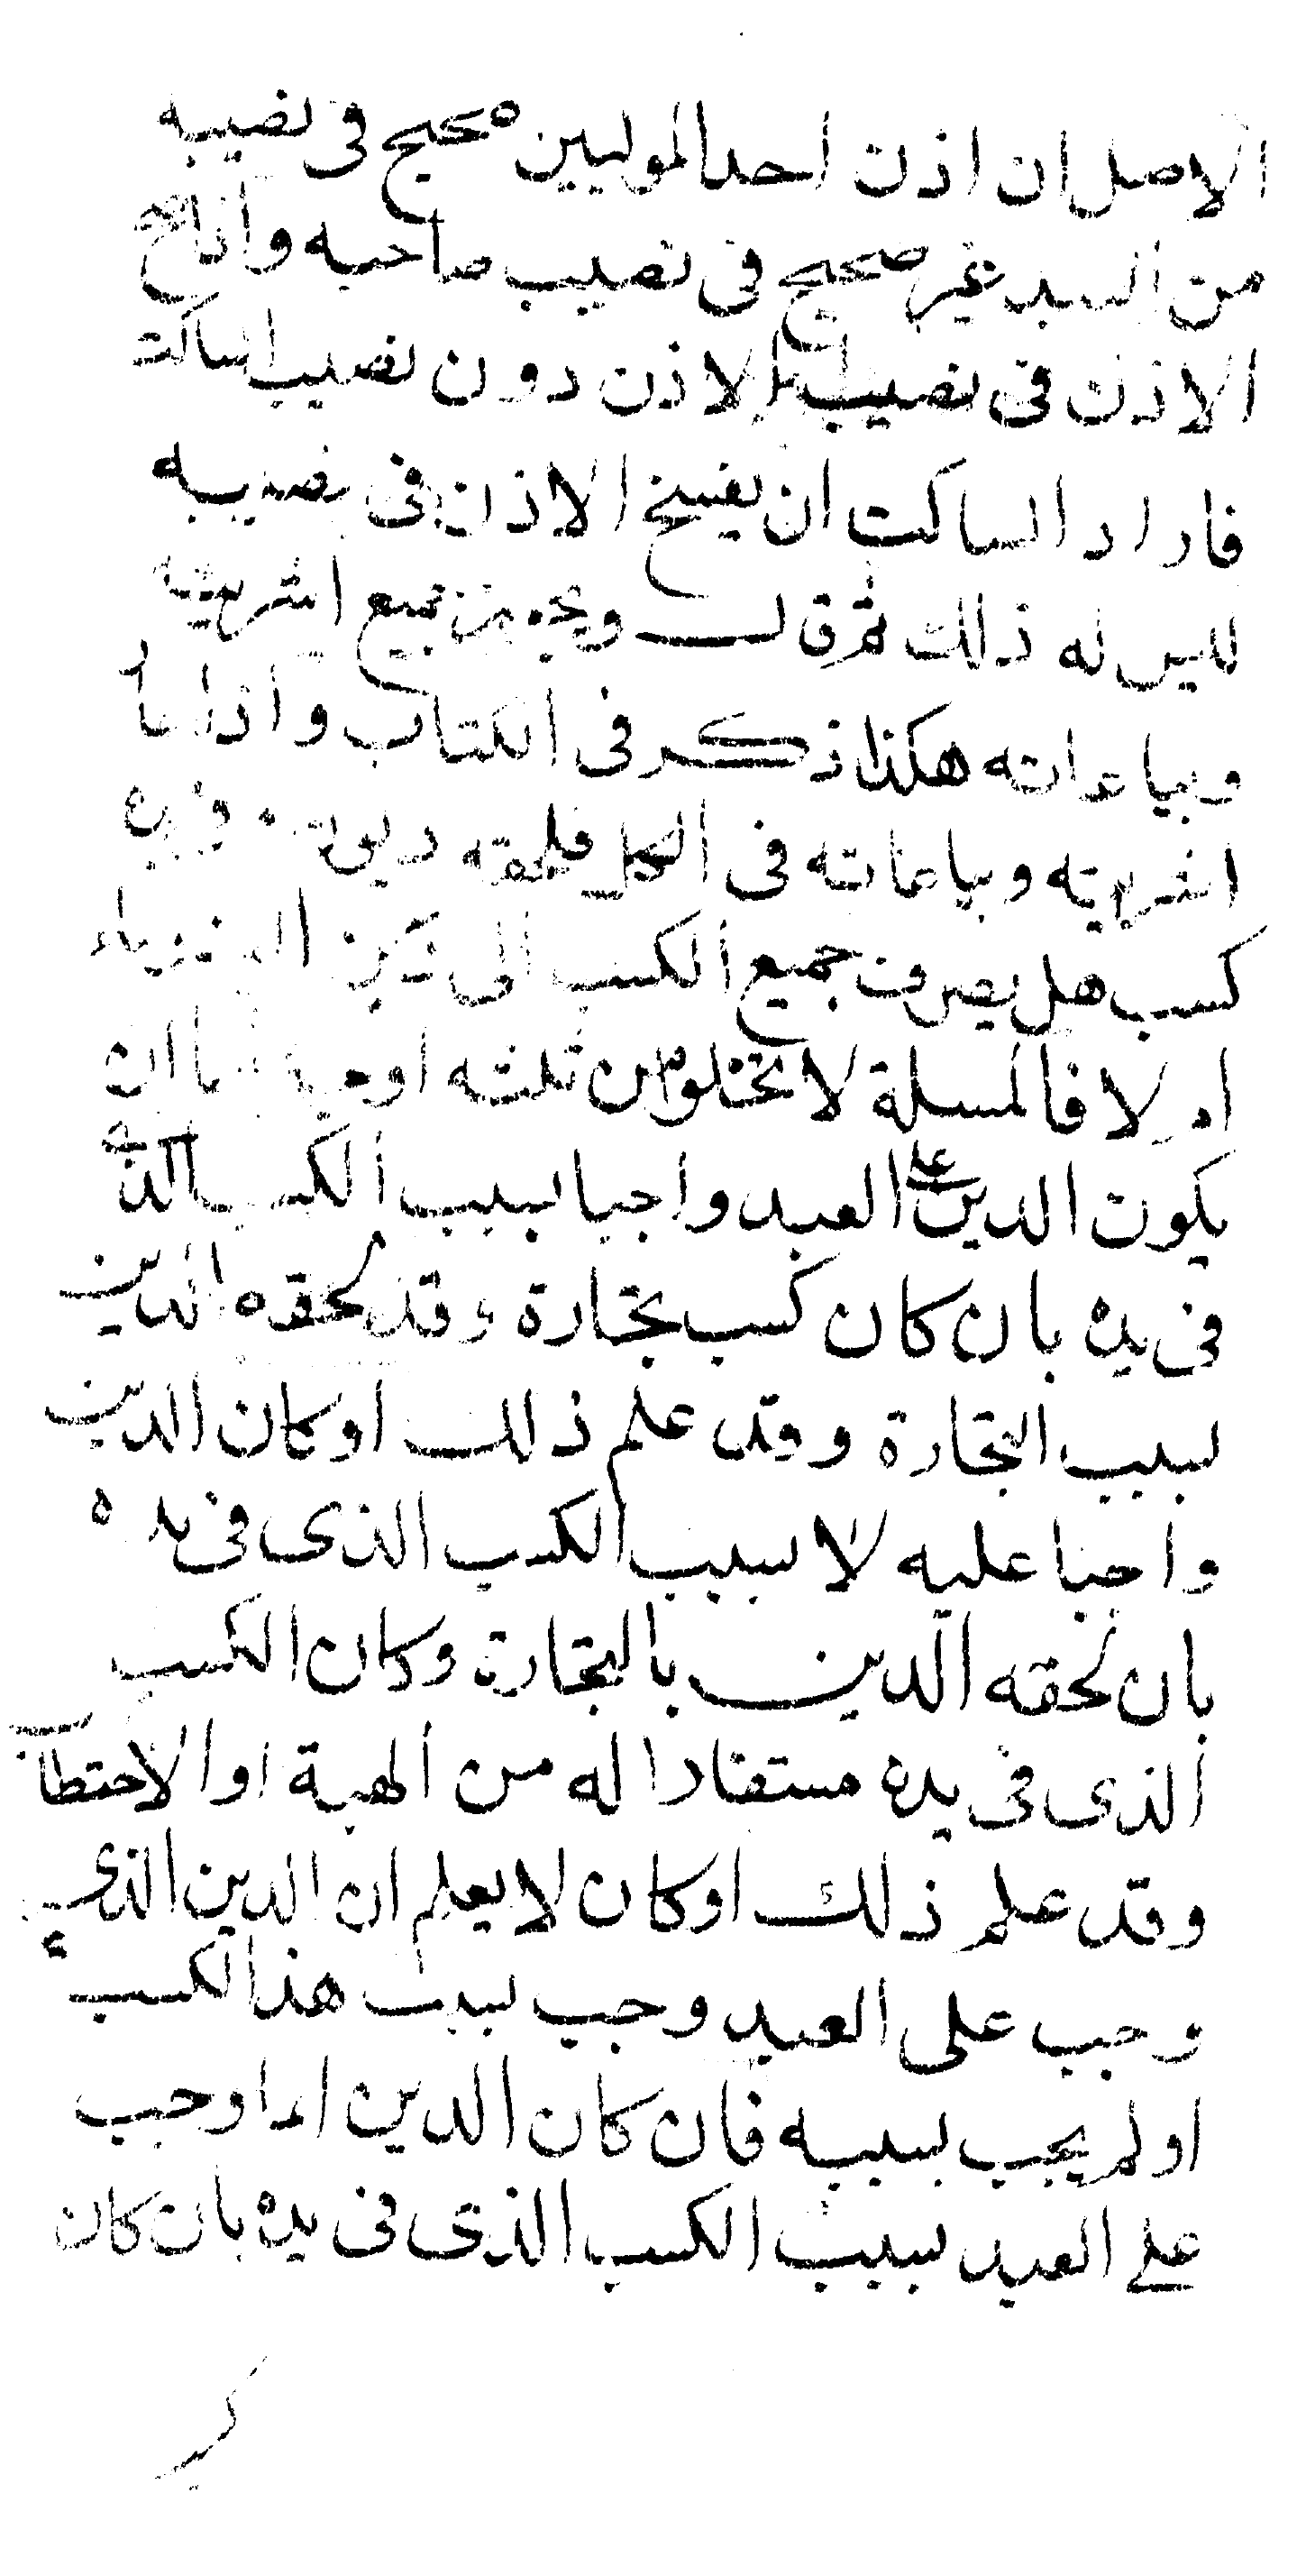 الاصل ان اذن احد الموليين صحيح فى نصيبه
من العبد غير صحيح فى نصيب صاحبه واذا صح
الاذن فى نصيب الاذن دون نصيب الساكت
فاراد الساكت ان يفسخ الاذن فى نصيبه
ليس له ذلك ثم قال ويجوز جميع اشريته
وبياعاته هكذا ذكر فى الكتاب واذا جاز
اشريته وبياعاته فى الكل فلحقه ديون وفى يده
كسب هل يصرف جميع الكسب الى دين الغرماء
ام لا فالمسلة لا تخلوا من ثلثه اوجه اما ان
يكون الدين على العبد واجبا بسبب الكسب الذى
فى يده بان كان كسب بتجارة وقد لحقه الدين
بسبب التجارة وقد علم ذلك او كان الدين
واجبا عليه لا بسبب الكسب الذى فى يده
بان لحقه الدين بالتجارة وكان الكسب
الذى فى يده مستفادا له من الهبة او الاحتطاب
وقد علم ذلك او كان لا يعلم ان الدين الذى
وجب على العبد وجب بسبب هذا الكسب
او لم يجب بسببه فان كان الدين انما وجب
على العبد بسبب الكسب الذى فى يده بان كان